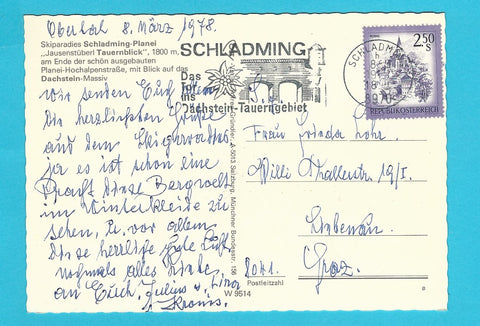 Obertal 8. März 1978.
Skiparadies Schladming-Planei
„Jausenstüberl Tauernblick", 1800 m,
am Ende der schön ausgebauten
Planei-Hochalpenstraße, mit Blick auf das
Dachstein-Massiv
Wir senden Euch
die herzlichsten Grüße
aus dem
ja es ist schon eine
Pracht diese Bergwelt
im Winterkleide zu
sehen, u. vor allem
diese herrliche gute Luft
nochmals alles Liebe
an Euch, Julius u.
SCHLADMING
Das
Tor
ins
Dachstein-Tauerngebiet
SCHLADMING
8970
2.50 S
REPUBLIK ÖSTERREICH
Frau
19/I.
Liebenau
Graz.
8041.
Postleitzahl
W 9514
A-5013 Salzburg, Münchner Bundesstr. 156